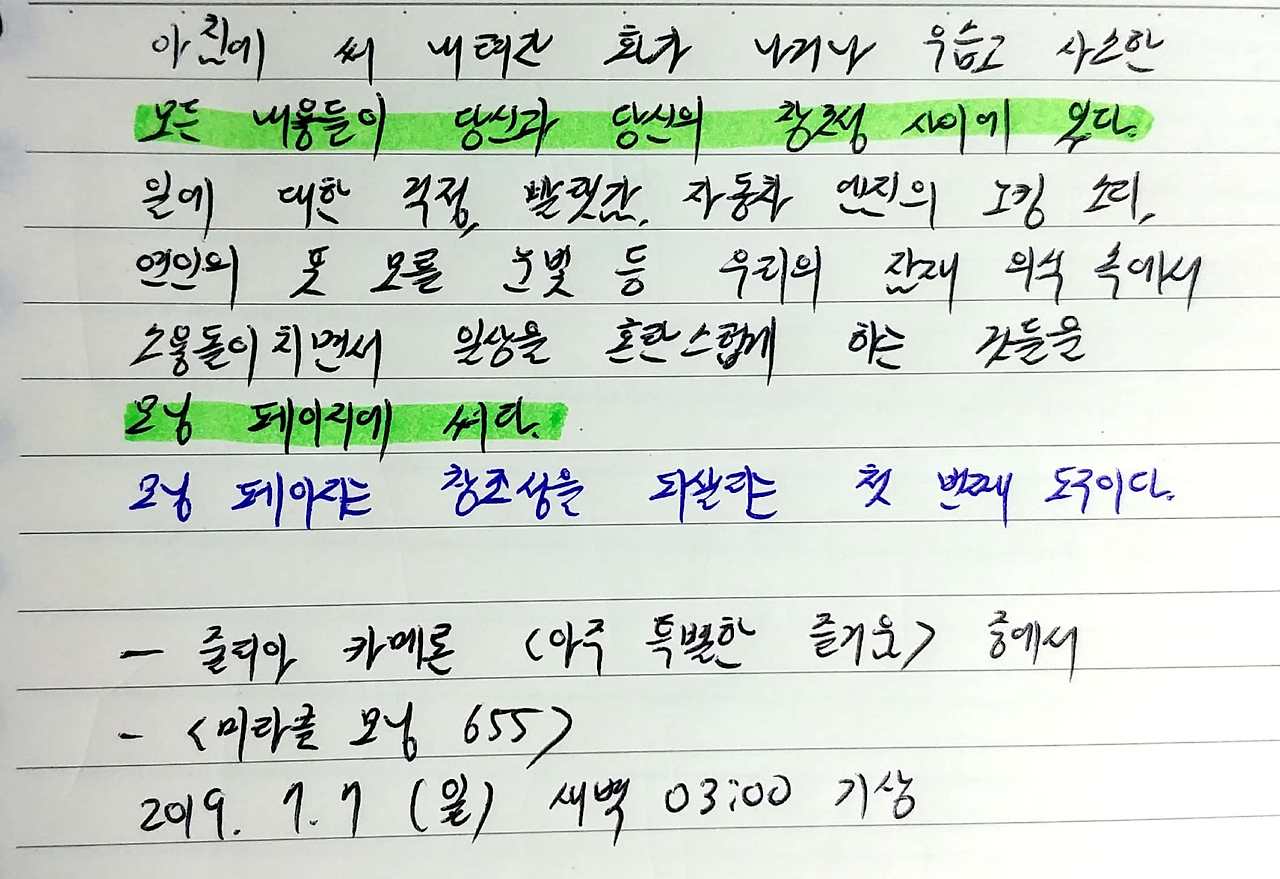 아침에 써 내려간 화가 나거나 우습고 사소한
모든 내용들이 당신과 당신의 창조성 사이에 있다.
일에 대한 걱정, 빨랫감, 자동차 엔진의 노킹 소리,
연인의 뜻 모를 눈빛 등 우리의 잠재 의식 속에서
소용돌이치면서 일상을 혼란스럽게 하는 것들을
모닝 페이지에 써라.
모닝 페이지는 창조성을 되살리는 첫 번째 도구이다.
– 줄리아 카메론 <아주 특별한 즐거움> 중에서
- <미라클 모닝 655>
2019. 7. 7 (월) 새벽 03:00 기상